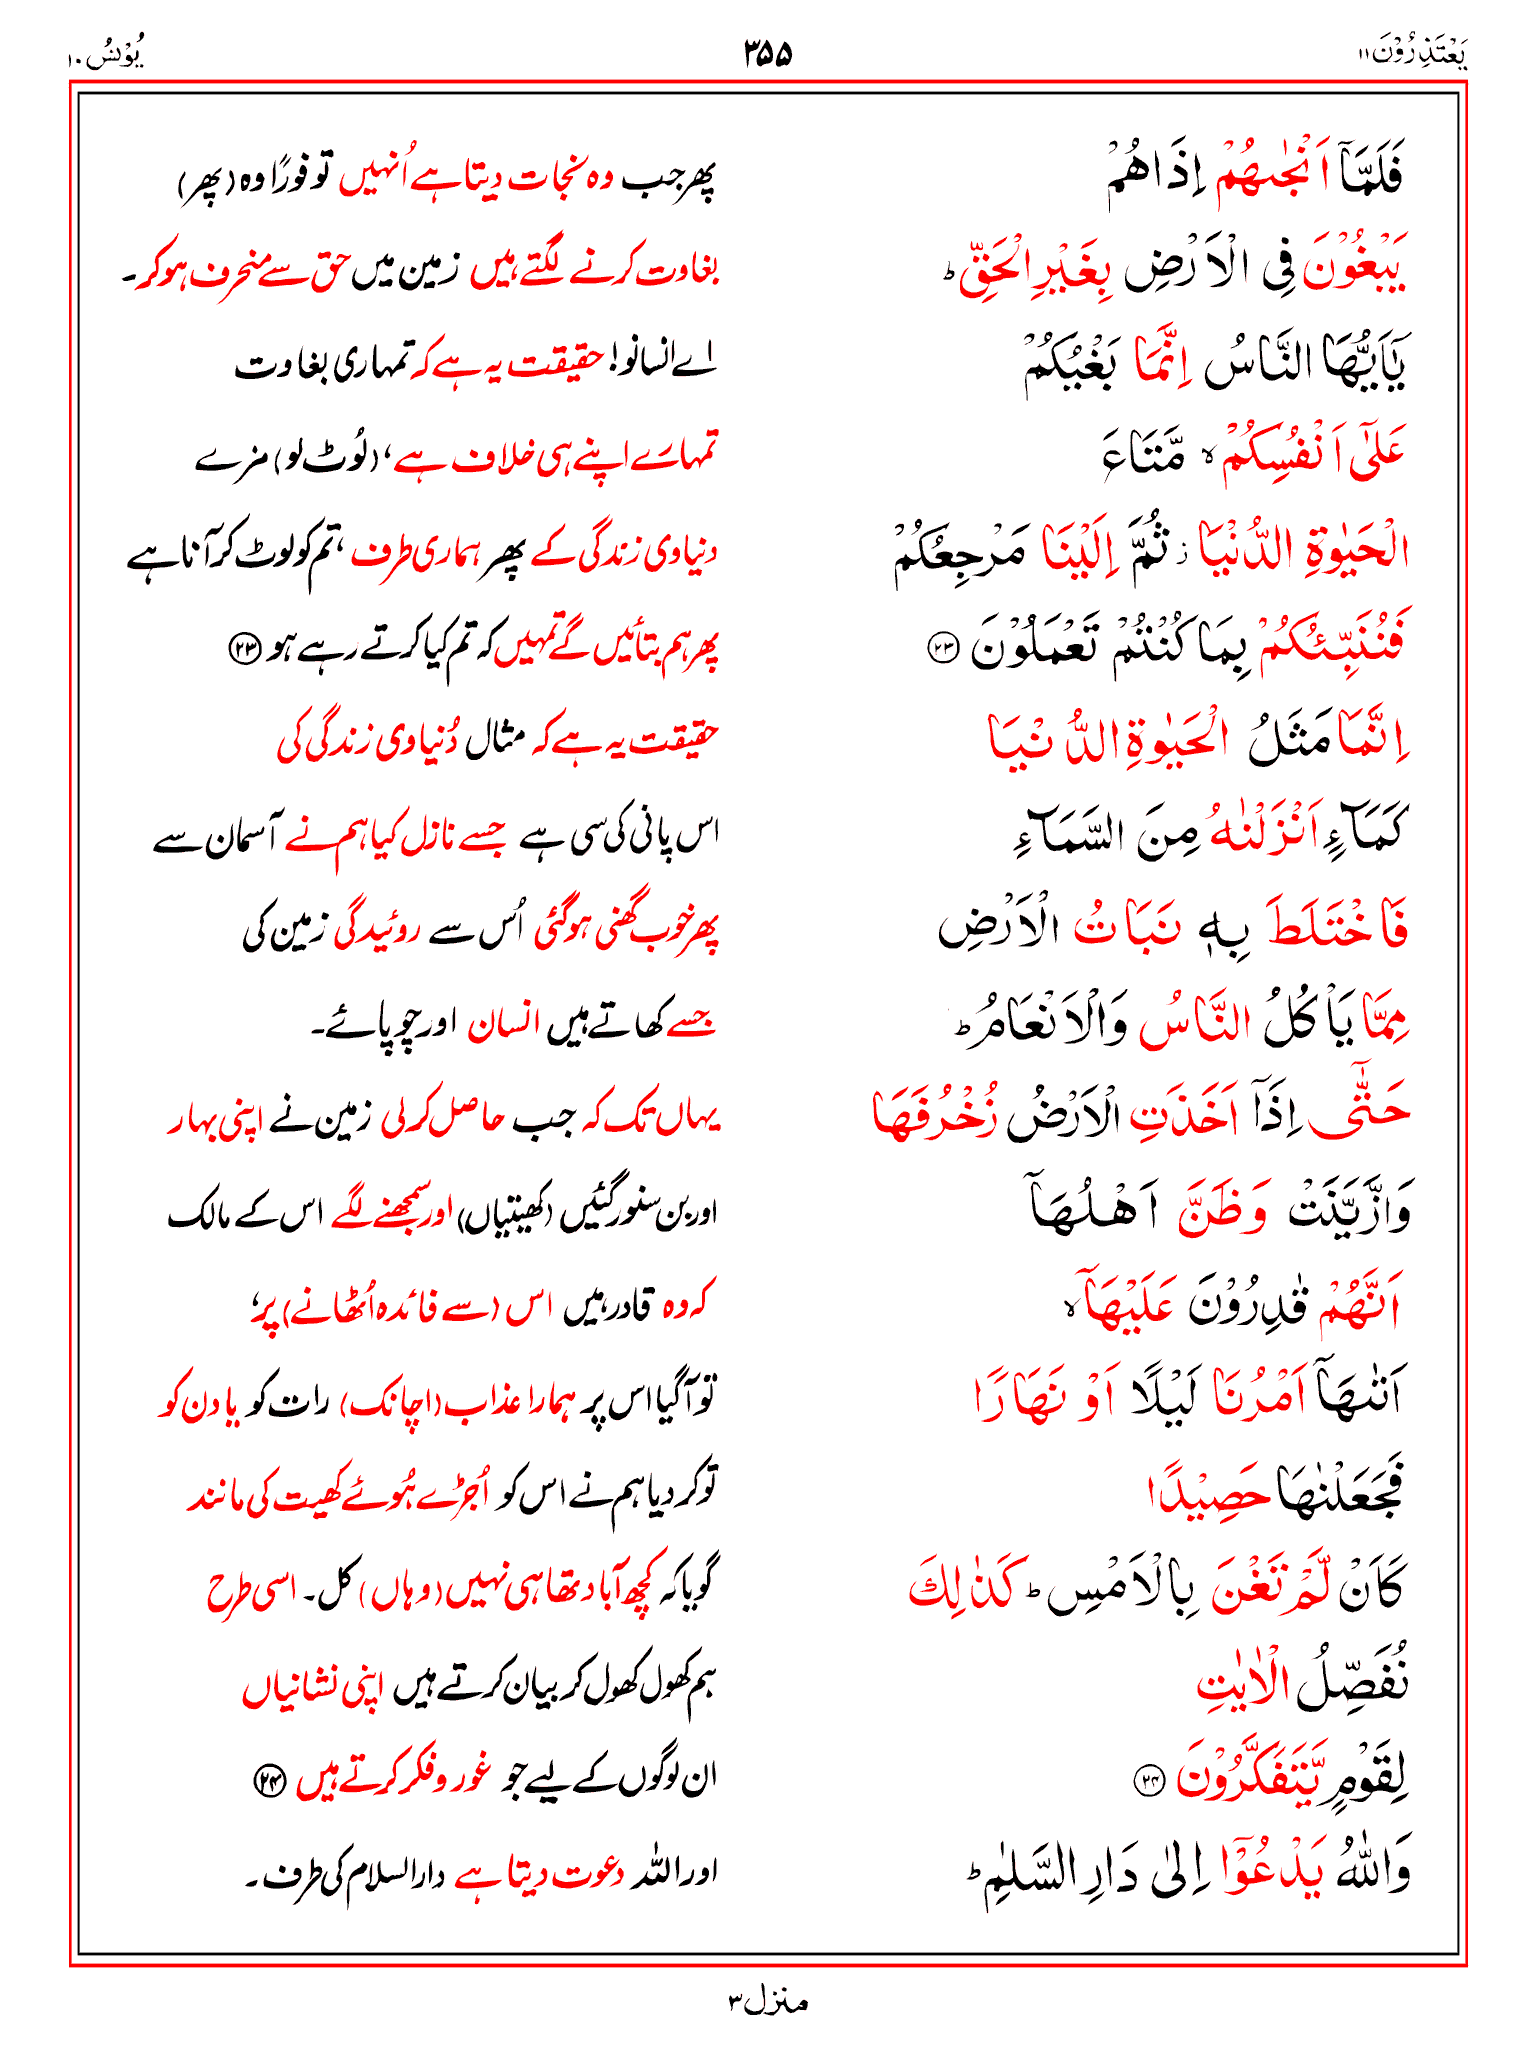 يَعْتَذِرُوْنَ ۱۱ ۳۵۵ يُوْنُسُ ۱۰
فَلَمَّاۤ اَنْجٰىهُمْ اِذَا هُمْ پھر جب وہ نجات دیتا ہے اُنہیں تو فورًا وہ (پھر)
يَبْغُوْنَ فِى الْاَرْضِ بِغَيْرِ الْحَقِّ ؕ بغاوت کرنے لگتے ہیں زمین میں حق سے منحرف ہو کر۔
يٰۤاَيُّهَا النَّاسُ اِنَّمَا بَغْيُكُمْ اے انسانو! حقیقت یہ ہے کہ تمہاری بغاوت
عَلٰٓى اَنْفُسِكُمْ ۙ مَّتَاعَ تمہارے اپنے ہی خلاف ہے، (لُوٹ لو) مزے
الْحَيٰوةِ الدُّنْيَا ؗ ثُمَّ اِلَيْنَا مَرْجِعُكُمْ دنیاوی زندگی کے پھر ہماری طرف ، تم کو لوٹ کر آنا ہے
فَنُنَبِّئُكُمْ بِمَا كُنْتُمْ تَعْمَلُوْنَ ۲۳ پھر ہم بتائیں گے تمہیں کہ تم کیا کرتے رہے ہو ۲۳
اِنَّمَا مَثَلُ الْحَيٰوةِ الدُّنْيَا حقیقت یہ ہے کہ مثال دُنیاوی زندگی کی
كَمَآءٍ اَنْزَلْنٰهُ مِنَ السَّمَآءِ اس پانی کی سی ہے جسے نازل کیا ہم نے آسمان سے
فَاخْتَلَطَ بِهٖ نَبَاتُ الْاَرْضِ پھر خوب گھنی ہوگئی اُس سے روئیدگی زمین کی
مِمَّا يَاْكُلُ النَّاسُ وَالْاَنْعَامُ ؕ جسے کھاتے ہیں انسان اور چوپائے۔
حَتّٰۤى اِذَاۤ اَخَذَتِ الْاَرْضُ زُخْرُفَهَا یہاں تک کہ جب حاصل کر لی زمین نے اپنی بہار
وَازَّيَّنَتْ وَظَنَّ اَهْلُهَاۤ اور بن سنور گئیں (کھیتیاں) اور سمجھنے لگے اس کے مالک
اَنَّهُمْ قٰدِرُوْنَ عَلَيْهَاۤ ۙ کہ وہ قادر ہیں اس (سے فائدہ اُٹھانے) پر،
اَتٰىهَاۤ اَمْرُنَا لَيْلًا اَوْ نَهَارًا تو آگیا اس پر ہمارا عذاب (اچانک) رات کو یا دن کو
فَجَعَلْنٰهَا حَصِيْدًا تو کر دیا ہم نے اس کو اُجڑے ہُوئے کھیت کی مانند
كَاَنْ لَّمْ تَغْنَ بِالْاَمْسِ ؕ كَذٰلِكَ گویا کہ کچھ آباد تھا ہی نہیں (وہاں) کل۔ اسی طرح
نُفَصِّلُ الْاٰيٰتِ ہم کھول کھول کر بیان کرتے ہیں اپنی نشانیاں
لِقَوْمٍ يَّتَفَكَّرُوْنَ ۲۴ ان لوگوں کے لیے جو غور و فکر کرتے ہیں ۲۴
وَاللّٰهُ يَدْعُوْۤا اِلٰى دَارِ السَّلٰمِ ؕ اور اللہ دعوت دیتا ہے دارالسلام کی طرف۔
منزل ۳